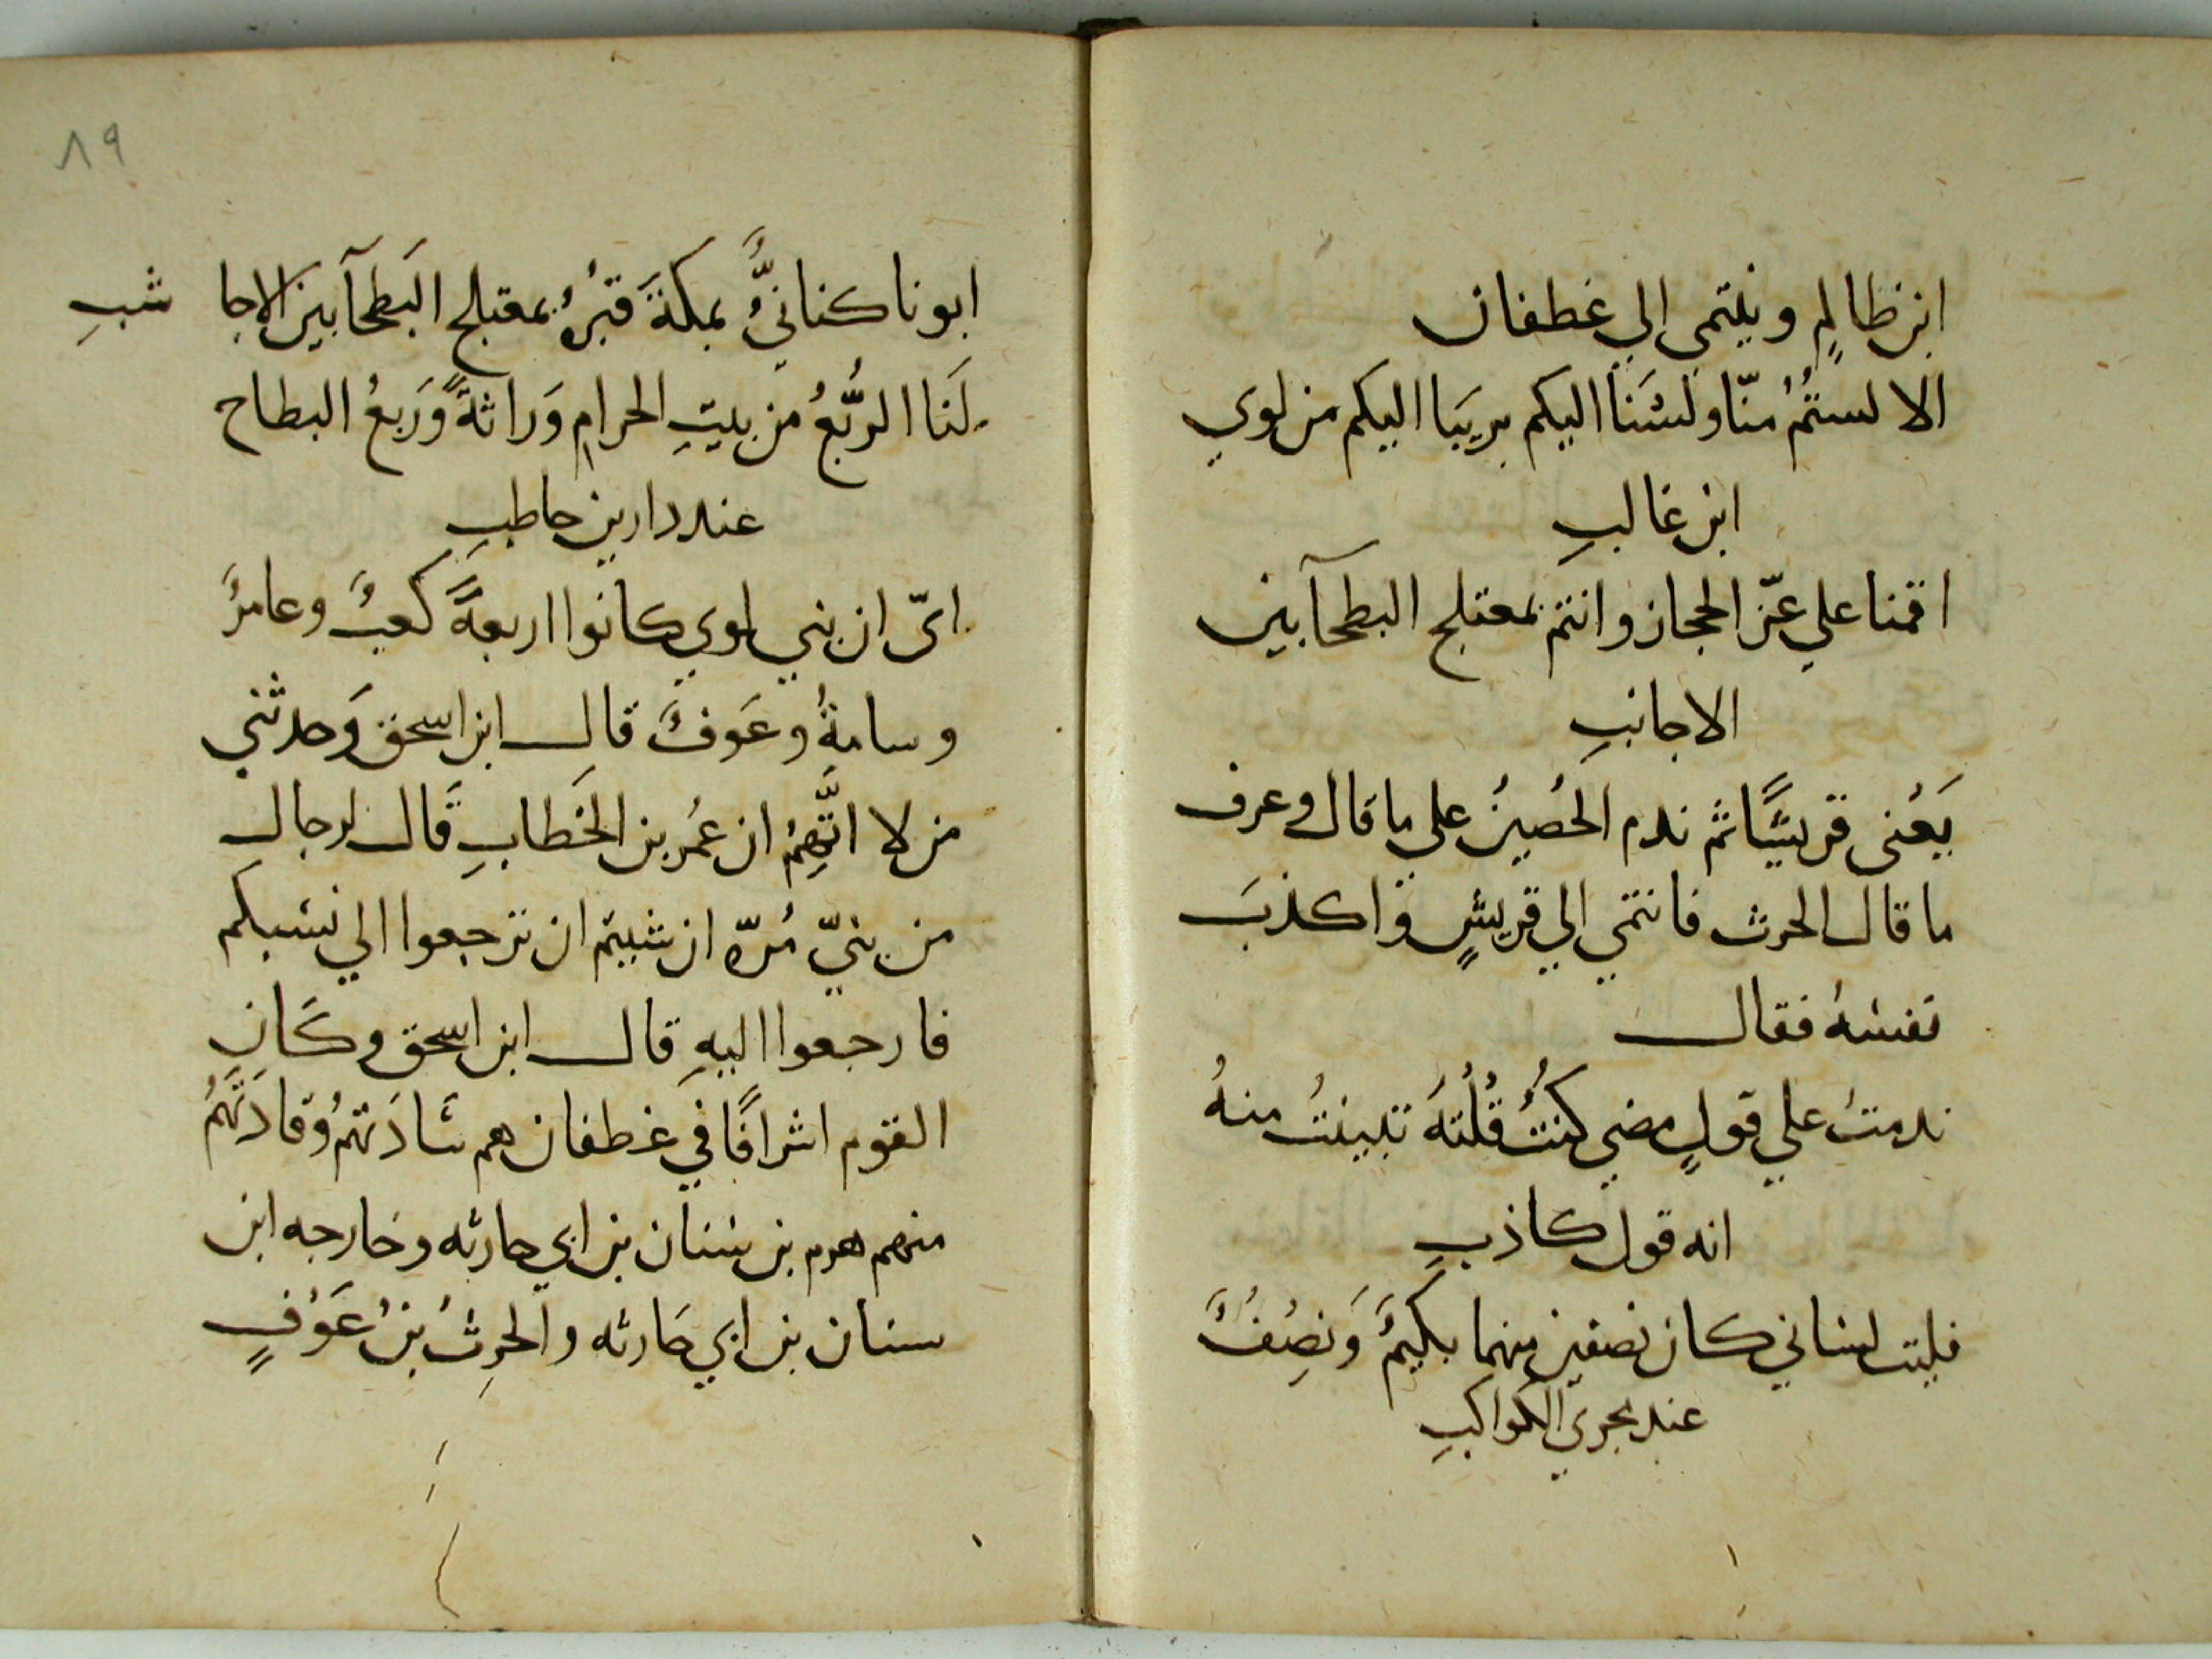 ابن ظالمٍ وينتمي إلي غطفان
الا لستمُ منّا ولسَنا اليكم بريَيا اليكم من لوي
ابن غالبِ
اقمنا علي عّز الحجاز وانتم بمعتلج البطحآ بين
الاجانبِ
يَعْنى قريشًا ثم ندم الحُصينُ علي ما قال وعرف
ما قال الحرث فانتمي الي قريشٍ واكذبَ
نفسهُ فقال
ندمتُ علي قولٍ مضي كنتُ قُلْتهُ تبينتُ منهُ
انه قول كاذبِ
فليت لساني كان نصفين منهما بكيمٌ وَنصِفٌ
عند مجرى الكواكبِ
٨٩
ابونا كنانيٌّ بمكةَ قبرُهُ بمعتلج البَطحآ بين الاجا شبِ
لَنَا الرُّبعُ من بيتِ الحرامِ وَراثةً وَربعُ البطاح
عند دار بن حاطبِ
اىّ ان بني لوي كانوا اربعةً كعبٌ وعامرٌ
وسامةُ وعَوفٌ قال ابن اسحق وَحدثني
من لا اتَّهِمُ ان عمُر بن الخَطابِ قَال لرجالِ
من بنيّ مُرّه ان شيتم ان ترجعوا الي نسبكم
فارجعوا اليهِ قال ابن اسحق وكَان
القوم اشرافًا في غَطفان هم سَادَتهُم وقادَتَهُم
منهم هرم بن سنان بن ابي حارثه وخارجه ابن
سنان بن ابي حَارثه والحرِثُ بنُ عَوْفٍ